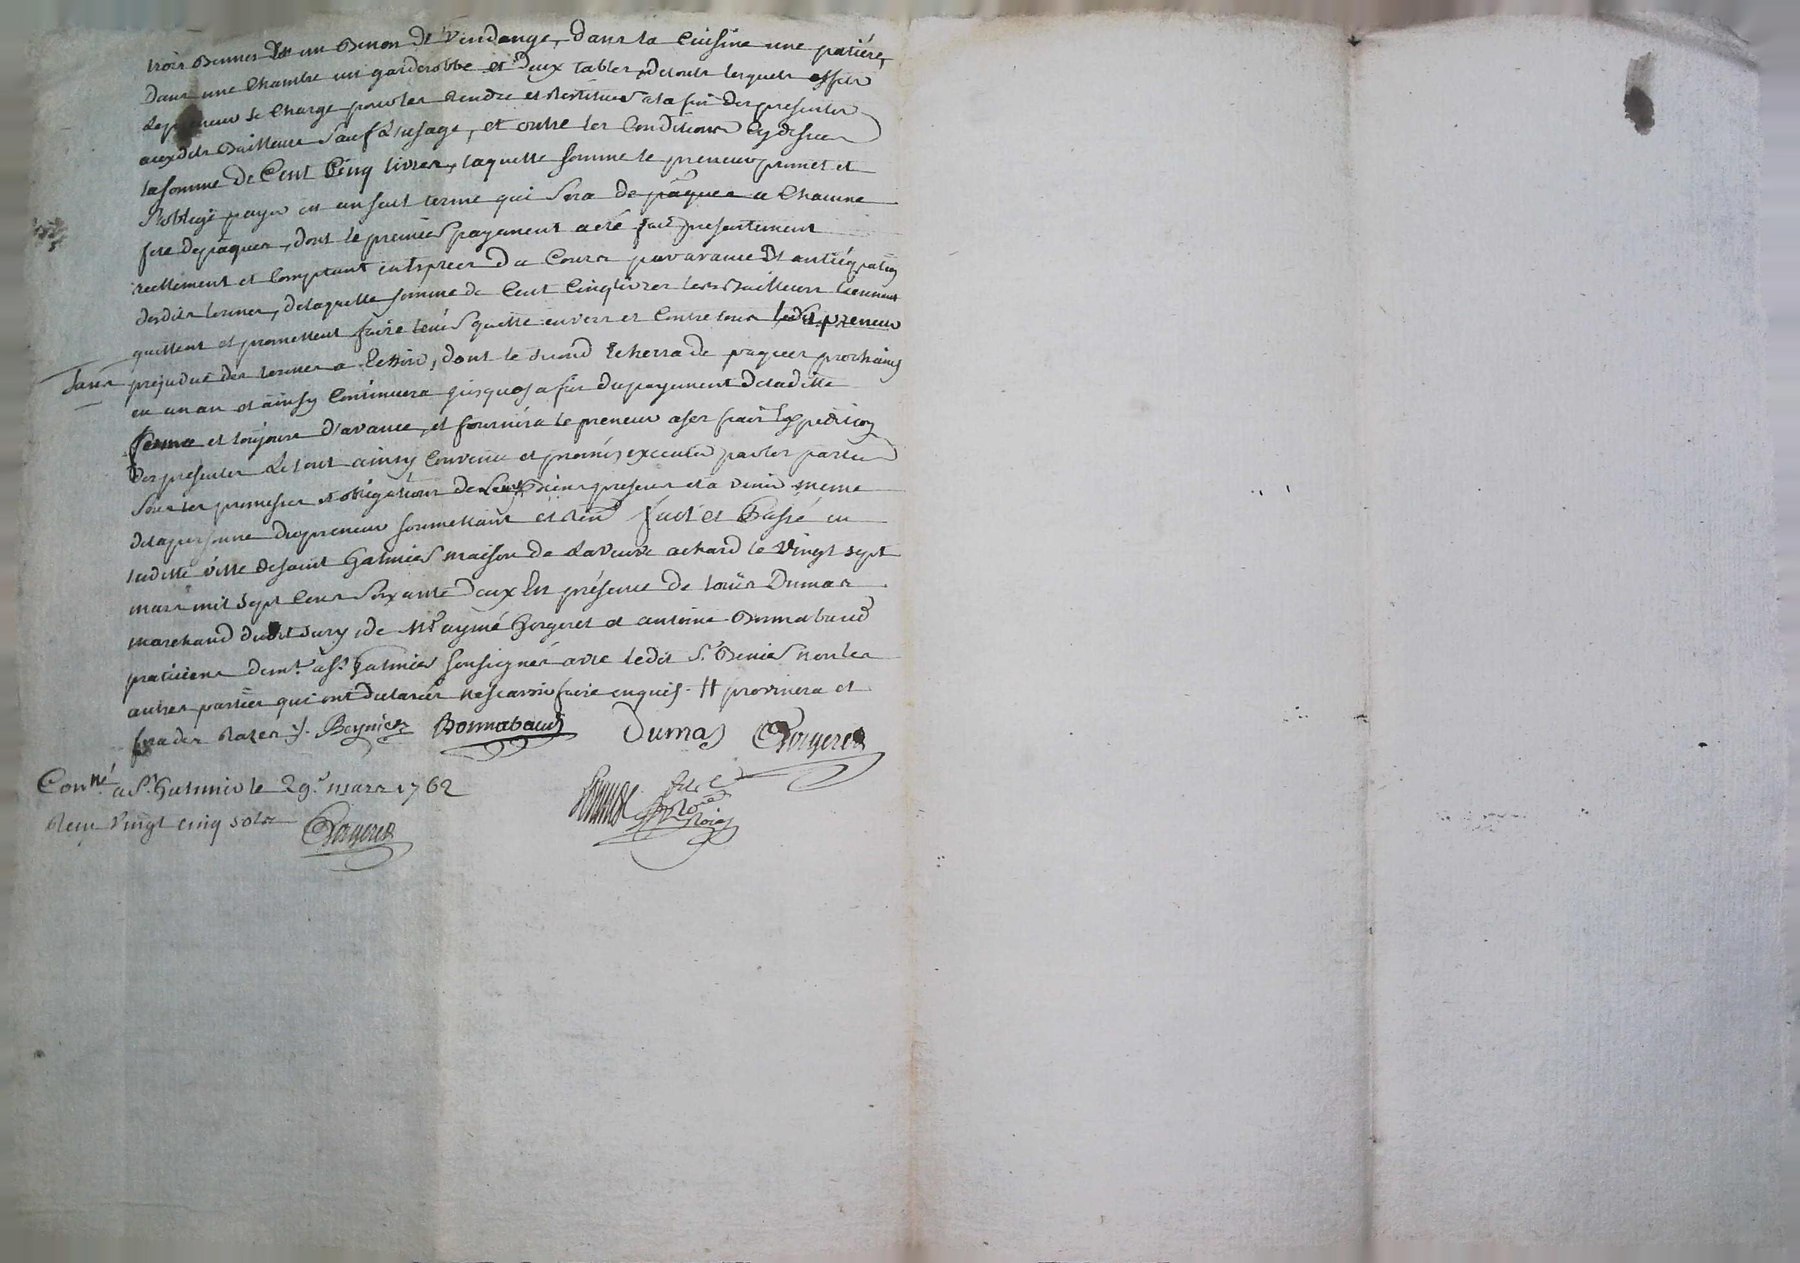 trois Bennes et un Benon de Vendange, dans la Cuisine une patière,
dans une Chambre un garderobbe et deux tables, de touts lesquels effets
le preneur se Charge pour les Rendre et Restituer a la fin des presentes
auxdits Bailleurs sauf L'usage, et outre les Conditions Cydessus
la somme de Cent Cinq livres, laquelle somme le preneur promet et
s'oblige payer en un seul terme qui sera de pâques a Chacune
fete de pâques, dont le premier payement a eté fait presentement
reellement et Comptant en espèces du Cours par avance Et anticipation
desdits termes, de laquelle somme de Cent Cinq livres lesdits Bailleurs tiennent
quittent et promettent faire tenir quitte envers et Contre tous ledit preneur
sans prejudice des termes a Echoir, dont le second Echerra de paques prochains
en un an et ainsy Continuera jusques a fin du payement de ladite
ferme et toujours d'avance, et fournira le preneur a ses frais Expedition
des presentes Le tout ainsy Convenu et promis executer par les parties
sous les promesses et obligations de Leurs Biens presens et a venir meme
de la personne du preneur soumettant et Renç fait et Passé en
ladite ville de saint Galmier maison de La veuve achard le Vingt sept
mars mil sept Cens soixante deux En présence de Louis Dumas
marchand dudit Sury, de Mr aymé Gorgeret et antoine Bonnabaud
praticiens demt a St Galmier soussignés avec ledit Sr Benier non les
autres parties qui ont declarés ne scavoir faire enquis. H provinera et
fera des Razes J. Beynier Bonnabaud Dumas Gorgeret
Conné a St Galmier le 29e mars 1762
Reçu Vingt cinq sols Gorgeret